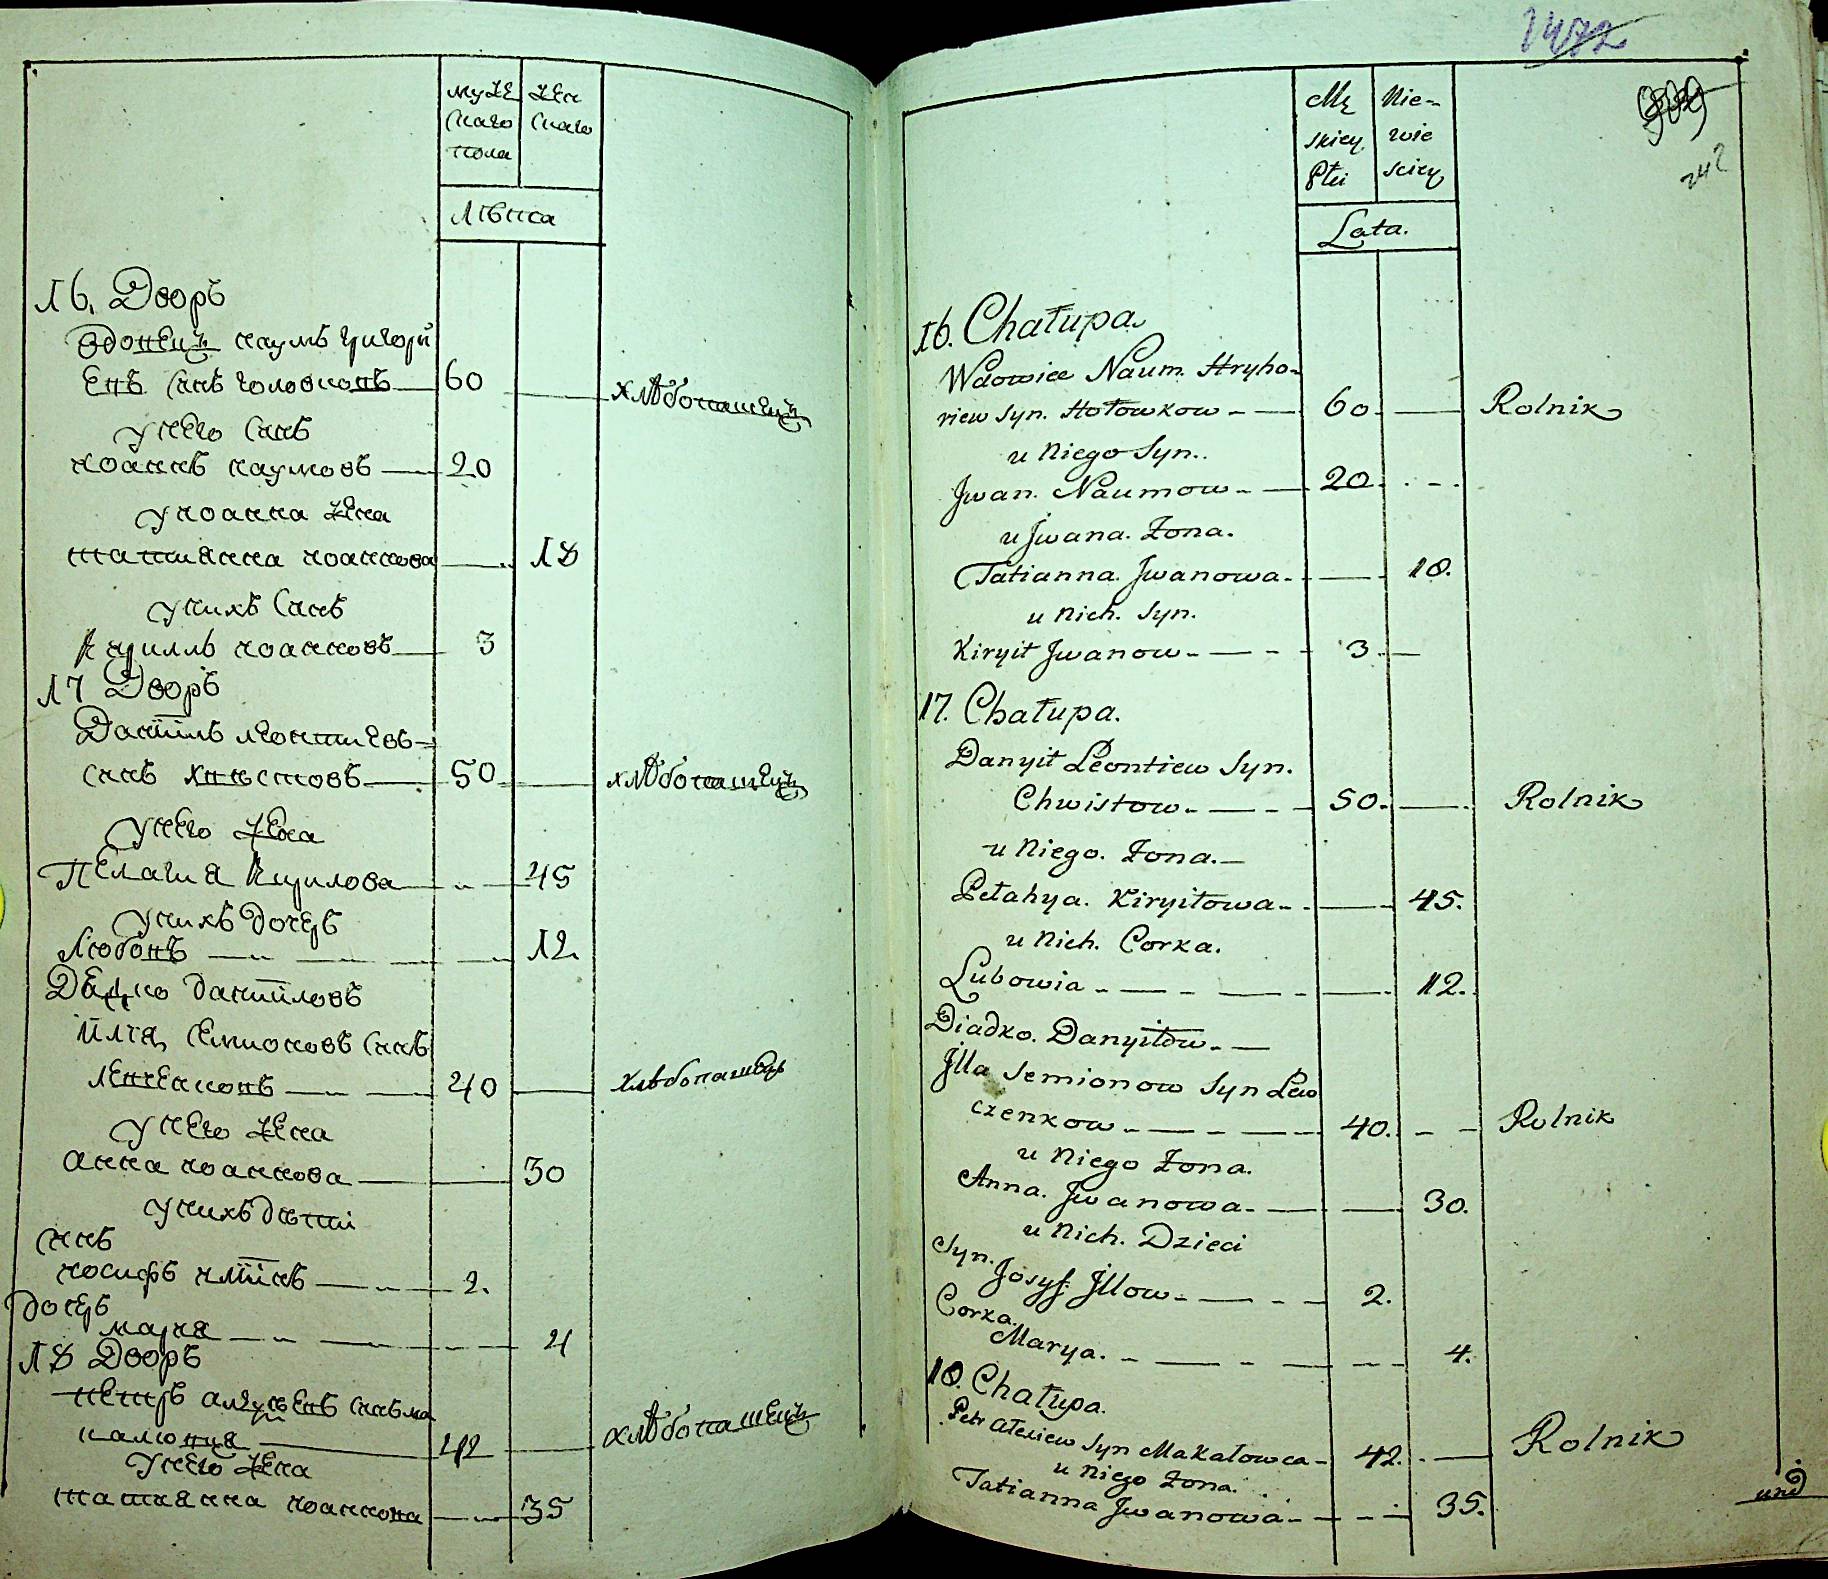 муже
скаго
пола
жен
скаго
Лѣта
16. Дворъ
Вдовецъ наумъ григорй
евъ сынъ головковъ 60 хлѣбопашецъ
унего сынъ
иоаннъ наумовъ 20
уиоанна жена
татианна иоаннова 18
унихъ сынъ
кириллъ иоанновъ 3
17 Дворъ
Даніилъ леонтиевъ
сынъ хвистовъ 50 хлѣбопашецъ
унего жена
Пелагия кирилова 45
унихъ дочерь
Любовь 12.
Дѣдко даніиловъ
Илія семионовъ сынъ
левченковъ 40 хлѣбопашецъ
унего жена
анна иоаннова 30
унихъ дѣти
сынъ
иосифъ иліинъ 2.
дочерь
мария 4
18 Дворъ
петръ алексѣевъ сынъ ма
калювца 42 хлѣбопашецъ
унего жена
татианна иоаннова 35
1472
242
Mę
skiey
Płci
Nie-
wie
sciey
Lata.
16. Chałupa.
Wdowiec Naum Hryho-
riew Syn. Hołowkow 60. Rolnik
u Niego Syn.
Jwan. Naumow 20.
u Jwana. Żona.
Tatianna. Jwanowa. 18.
u Nich. Syn.
Kirył Jwanow 3.
17. Chałupa.
Danyił Leontiew Syn.
Chwistow. 50. Rolnik
u Niego. Żona.
Pełahya. Kiryłowa 45.
u Nich. Corka.
Lubowia 12.
Diadko. Danyiłow.
Jlla Semionow Syn Lew
czenkow. 40. Rolnik
u Niego Żona.
Anna. Jwanowa. 30.
u Nich. Dzieci
Syn.
Josyf. Jllow. 2.
Corka.
Marya. 4.
18. Chałupa.
Petr Ałexiew Syn Makałowca 42. Rolnik
u Niego Żona.
Tatianna Jwanowa 35.